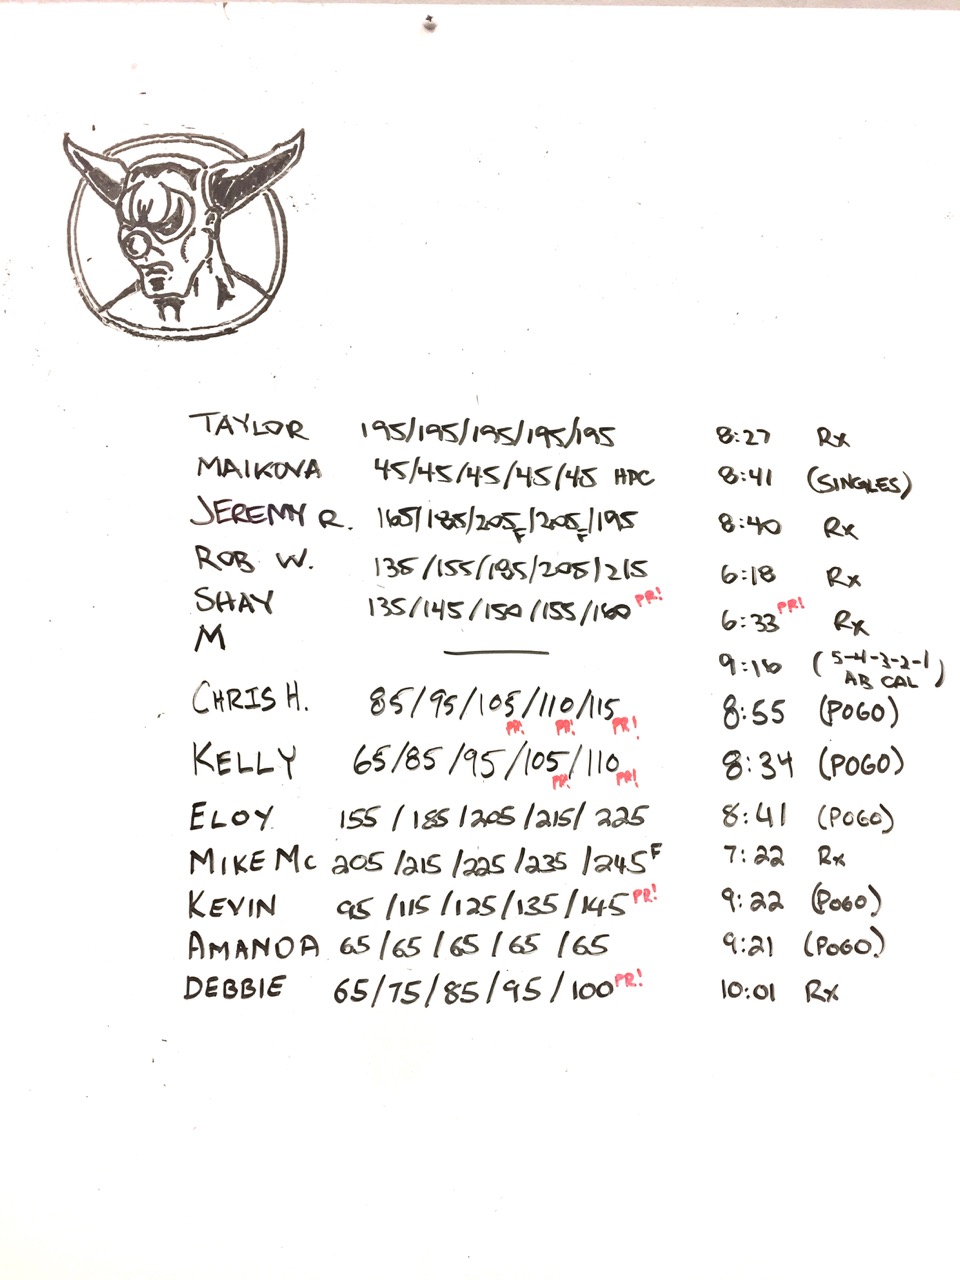 TAYLOR 195/195/195/195/195 8:27 Rx
MAIKOVA 45/45/45/45/45 HPC 8:41 (SINGLES)
JEREMY R. 165/185/205F/205F/195 8:40 Rx
ROB W. 135/155/185/205/215 6:18 Rx
SHAY 135/145/150/155/160 PR! 6:33 PR! Rx
M — 9:18 (5-4-3-2-1 AB CAL)
CHRIS H. 85/95/105/110/115 8:55 (POGO)
PR! PR! PR!
KELLY 65/85/95/105/110 8:34 (POGO)
PR! PR!
ELOY 155/185/205/215/225 8:41 (POGO)
MIKE MC 205/215/225/235/245F 7:22 Rx
KEVIN 95/115/125/135/145 PR! 9:22 (POGO)
AMANDA 65/65/65/65/65 9:21 (POGO)
DEBBIE 65/75/85/95/100 PR! 10:01 Rx